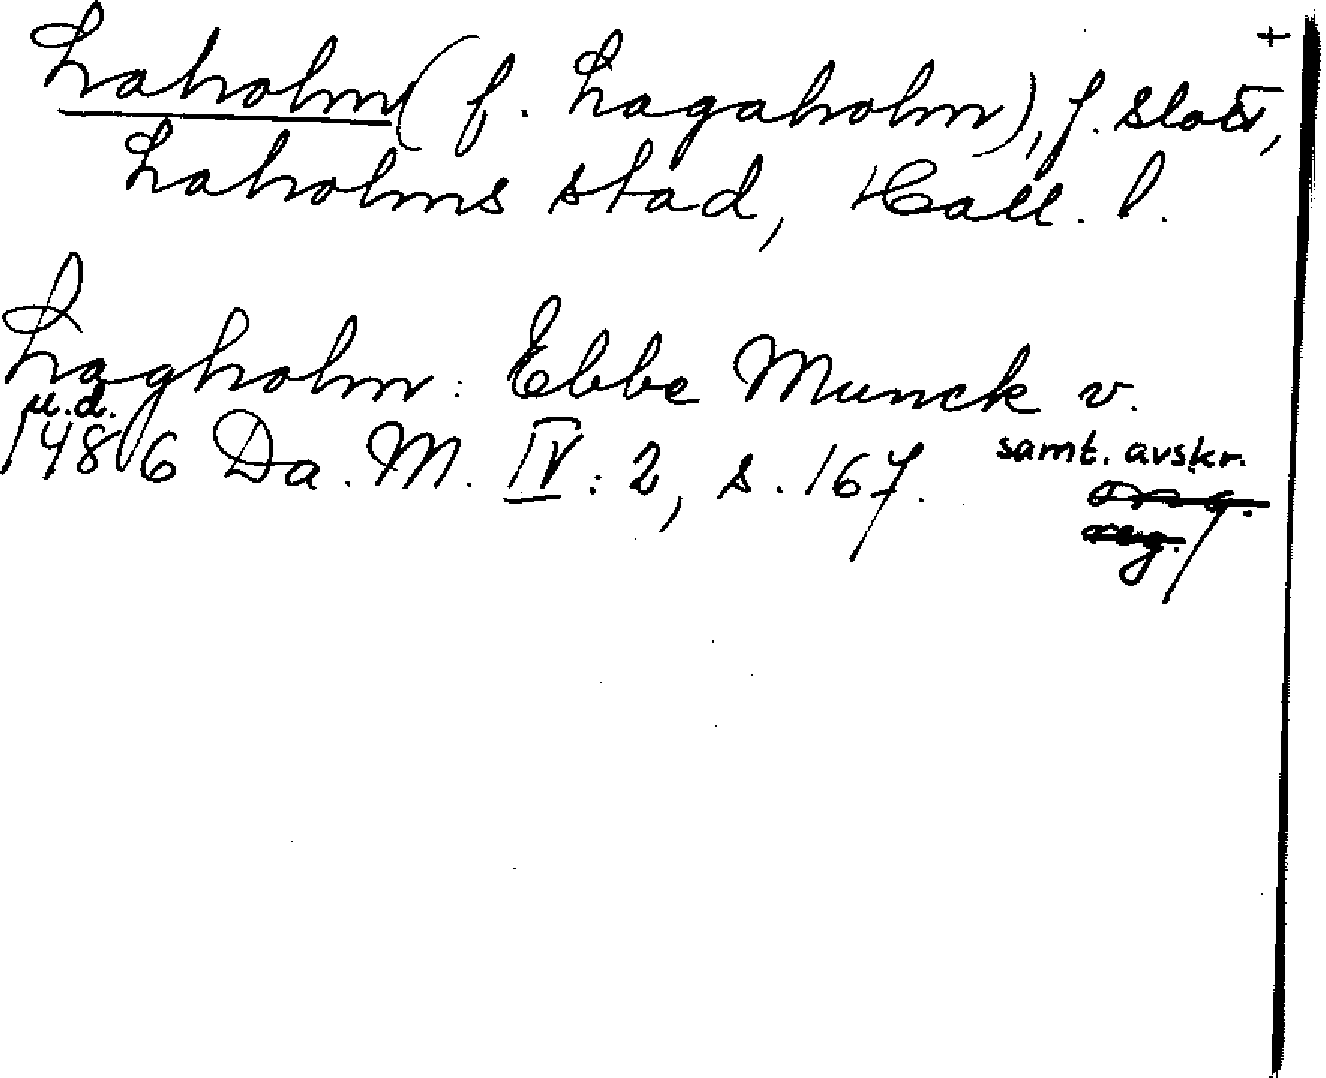 +
Laholm (f. Lagaholm), f. slott,
Laholms stad, Hall. l.
Lagholm: Ebbe Munck v.
u.d.
1486 Da. M. IV: 2, s. 167.
samt. avskr.